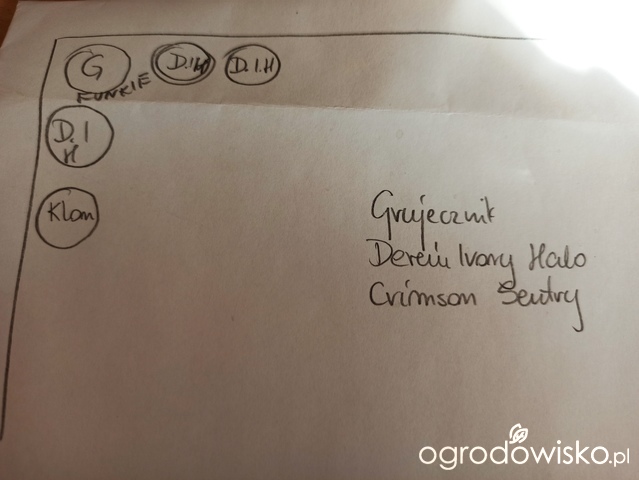 G
D.IH
D.I.H
FUNKIE
D.I
H
Klon
Grujecznik
Dereń Ivory Halo
Crimson Sentry
ogrodowisko.pl